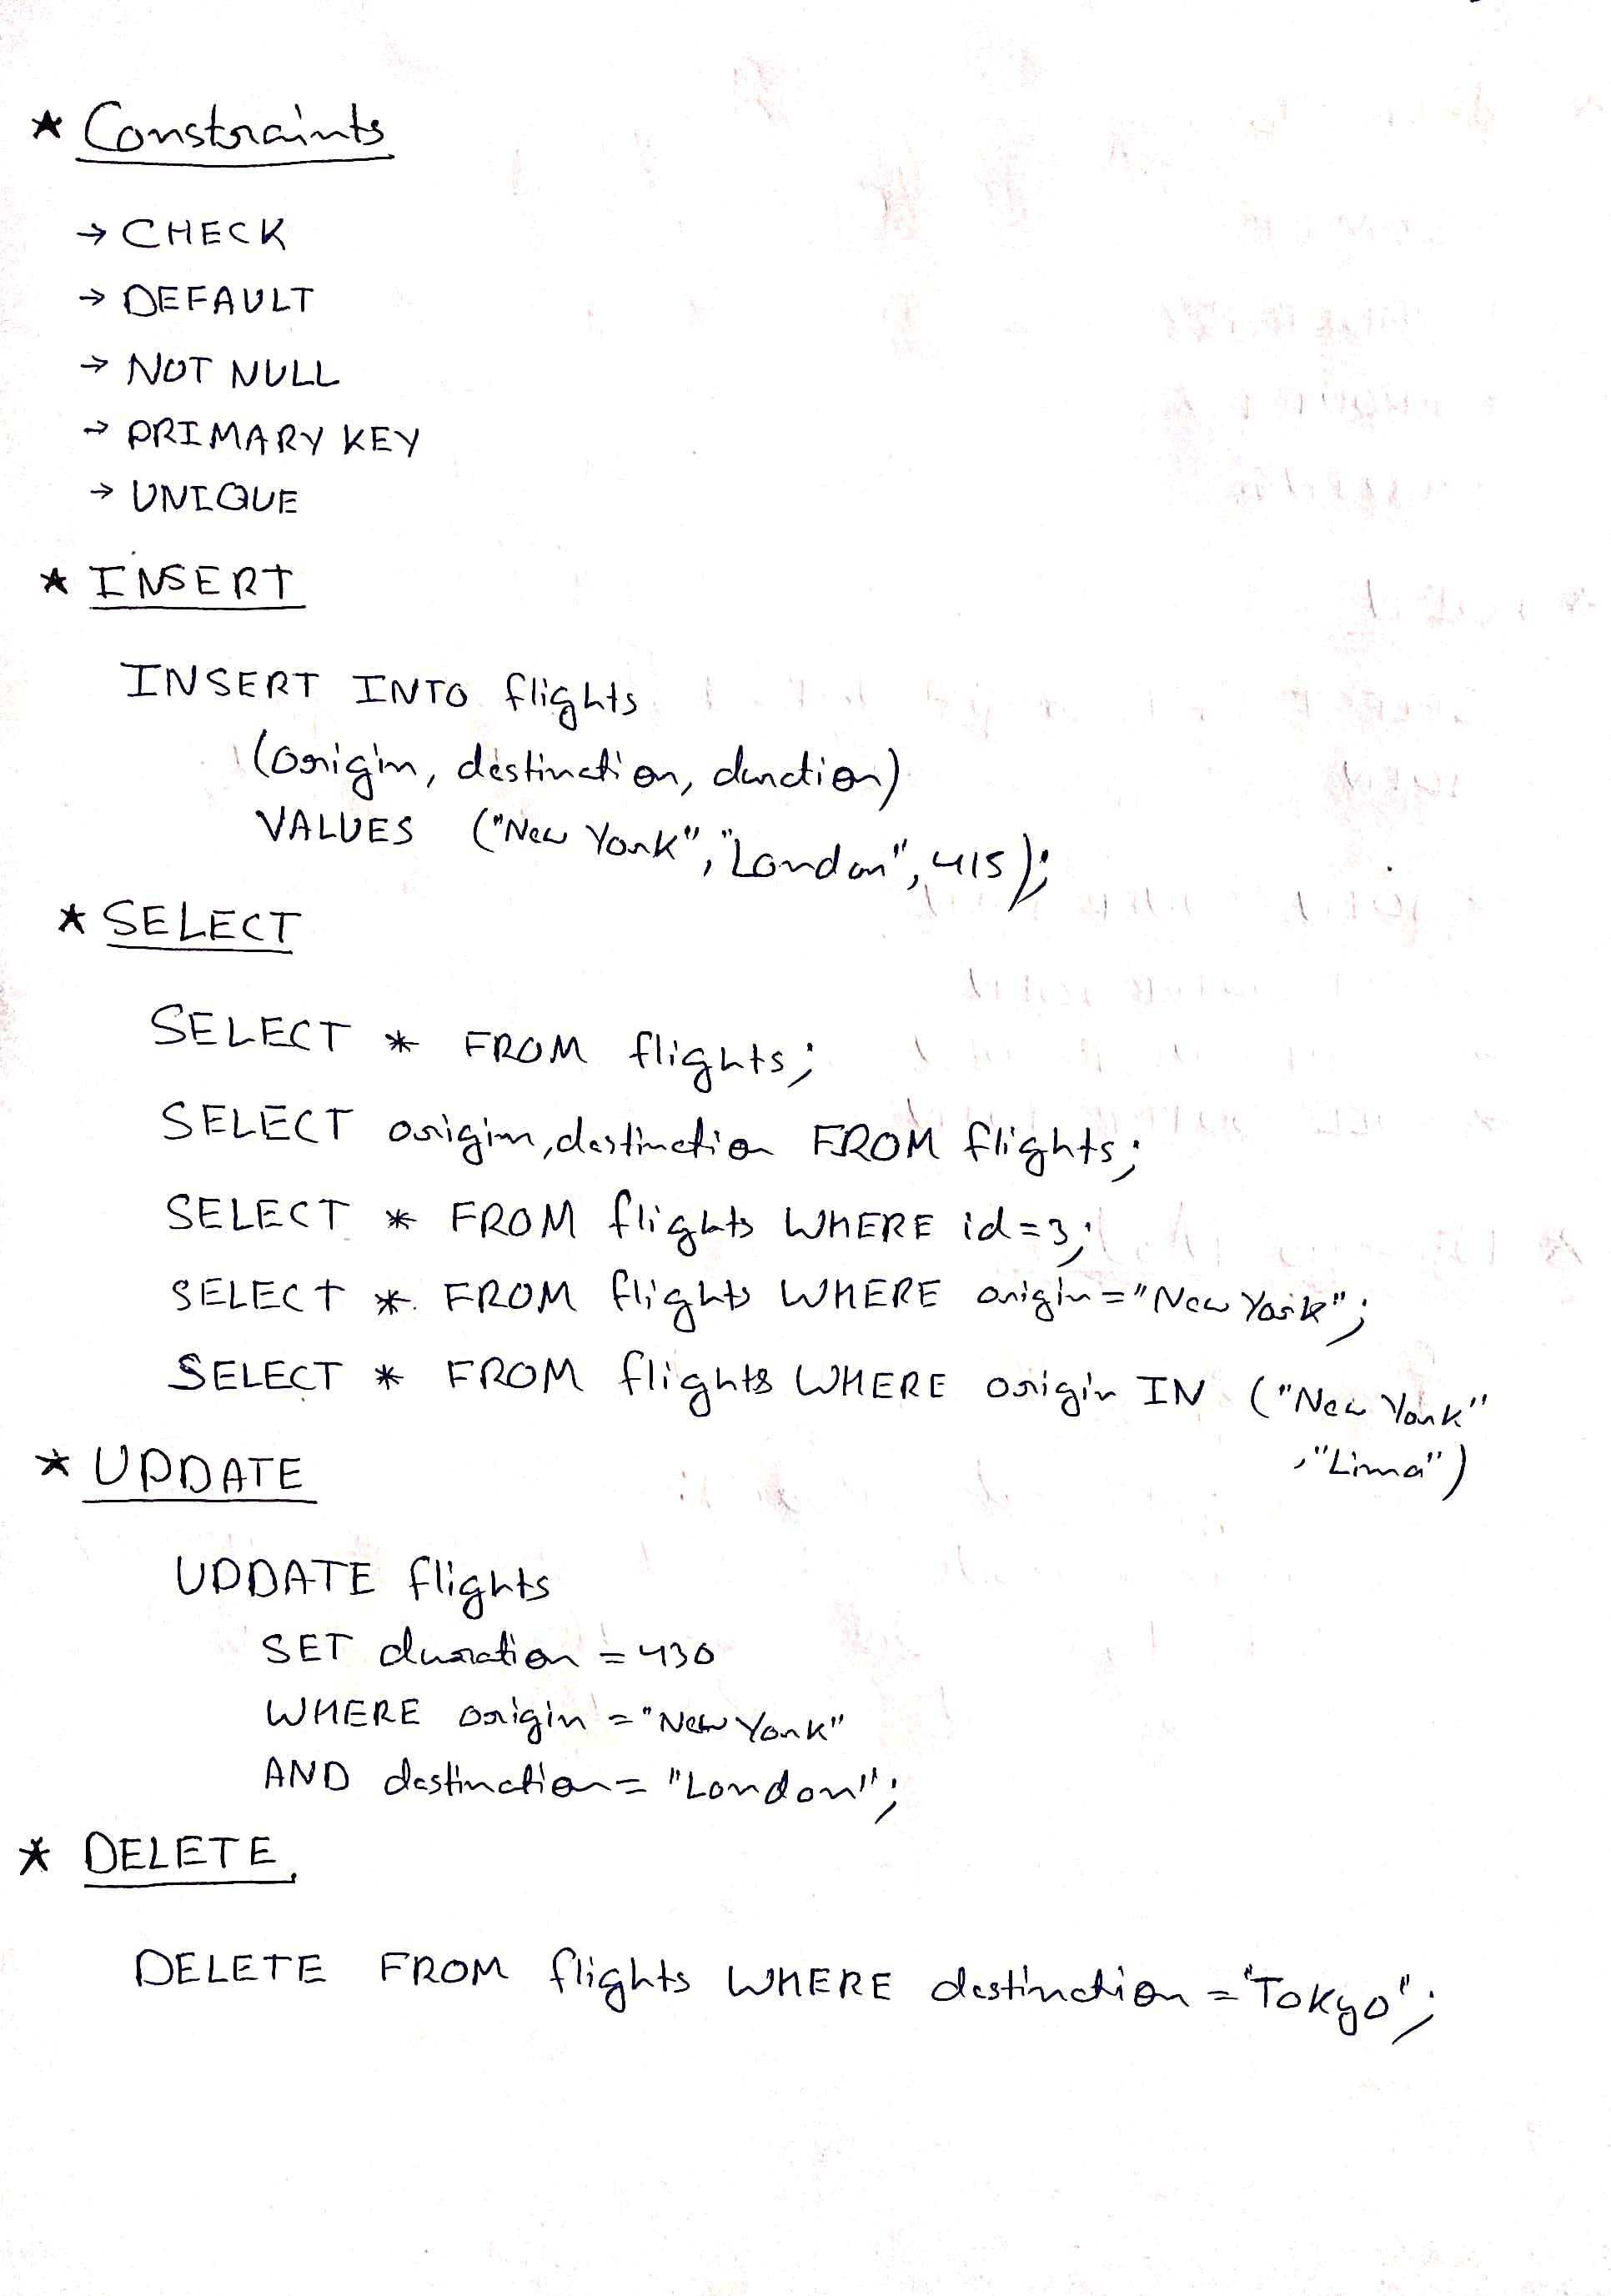 * Constraints
→ CHECK
→ DEFAULT
→ NOT NULL
→ PRIMARY KEY
→ UNIQUE
* INSERT
INSERT INTO flights
(origin, destination, duration)
VALUES ("New York", "London", 415);
* SELECT
SELECT * FROM flights;
SELECT origin, destination FROM flights;
SELECT * FROM flights WHERE id=3;
SELECT * FROM flights WHERE origin="New York";
SELECT * FROM flights WHERE origin IN ("New York"
,"Lima")
* UPDATE
UPDATE flights
SET duration = 430
WHERE origin = "New York"
AND destination = "London";
* DELETE
DELETE FROM flights WHERE destination = "Tokyo";